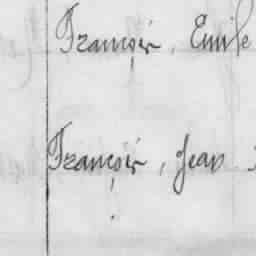 François, Emile
François, Jean